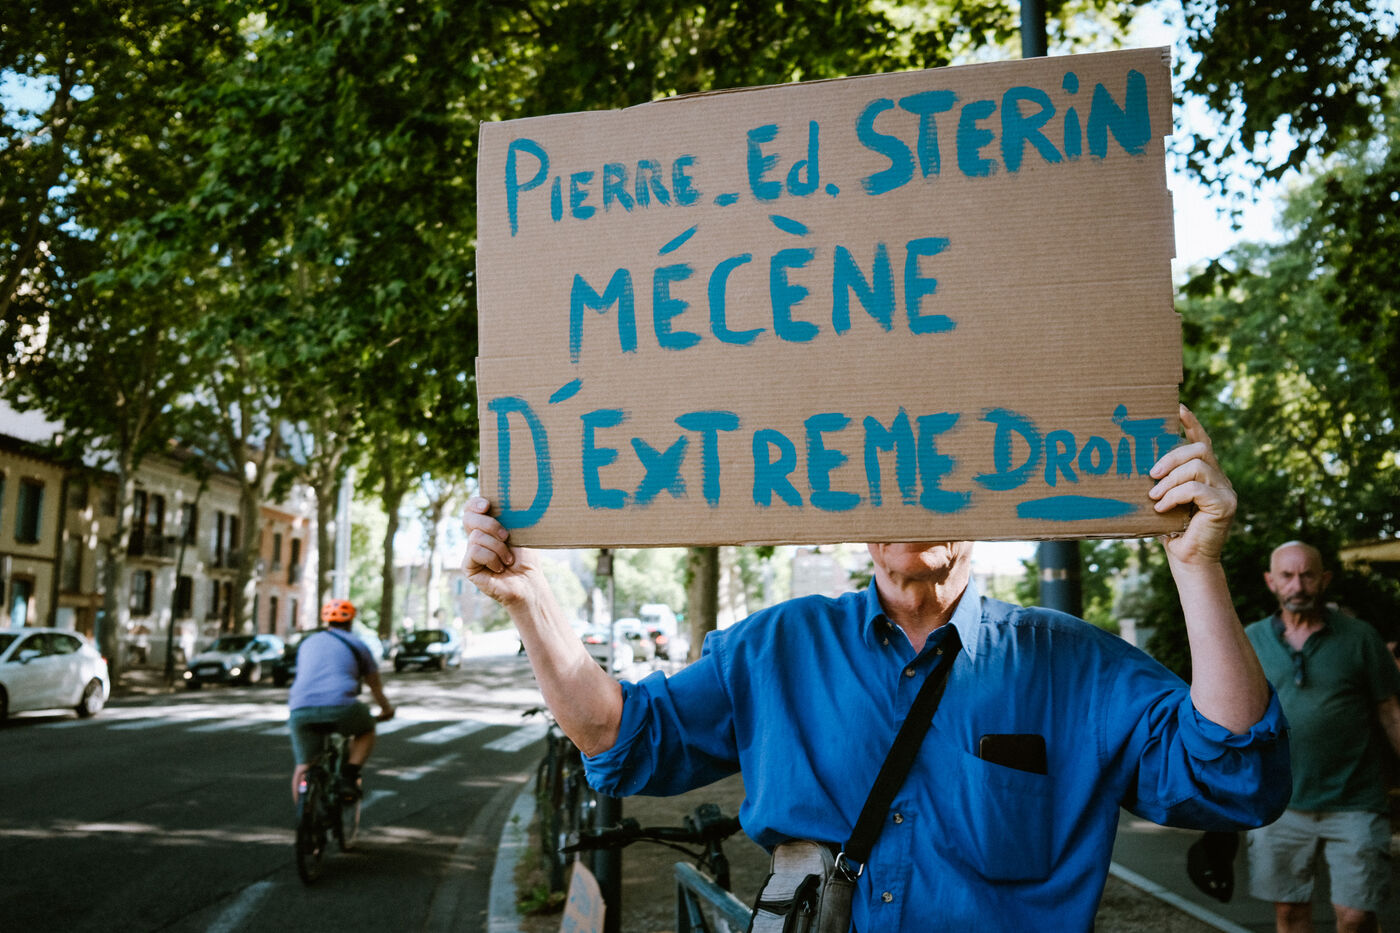 PIERRE_Ed. STERiN
MÉCÈNE
D'EXTREME DROiTE